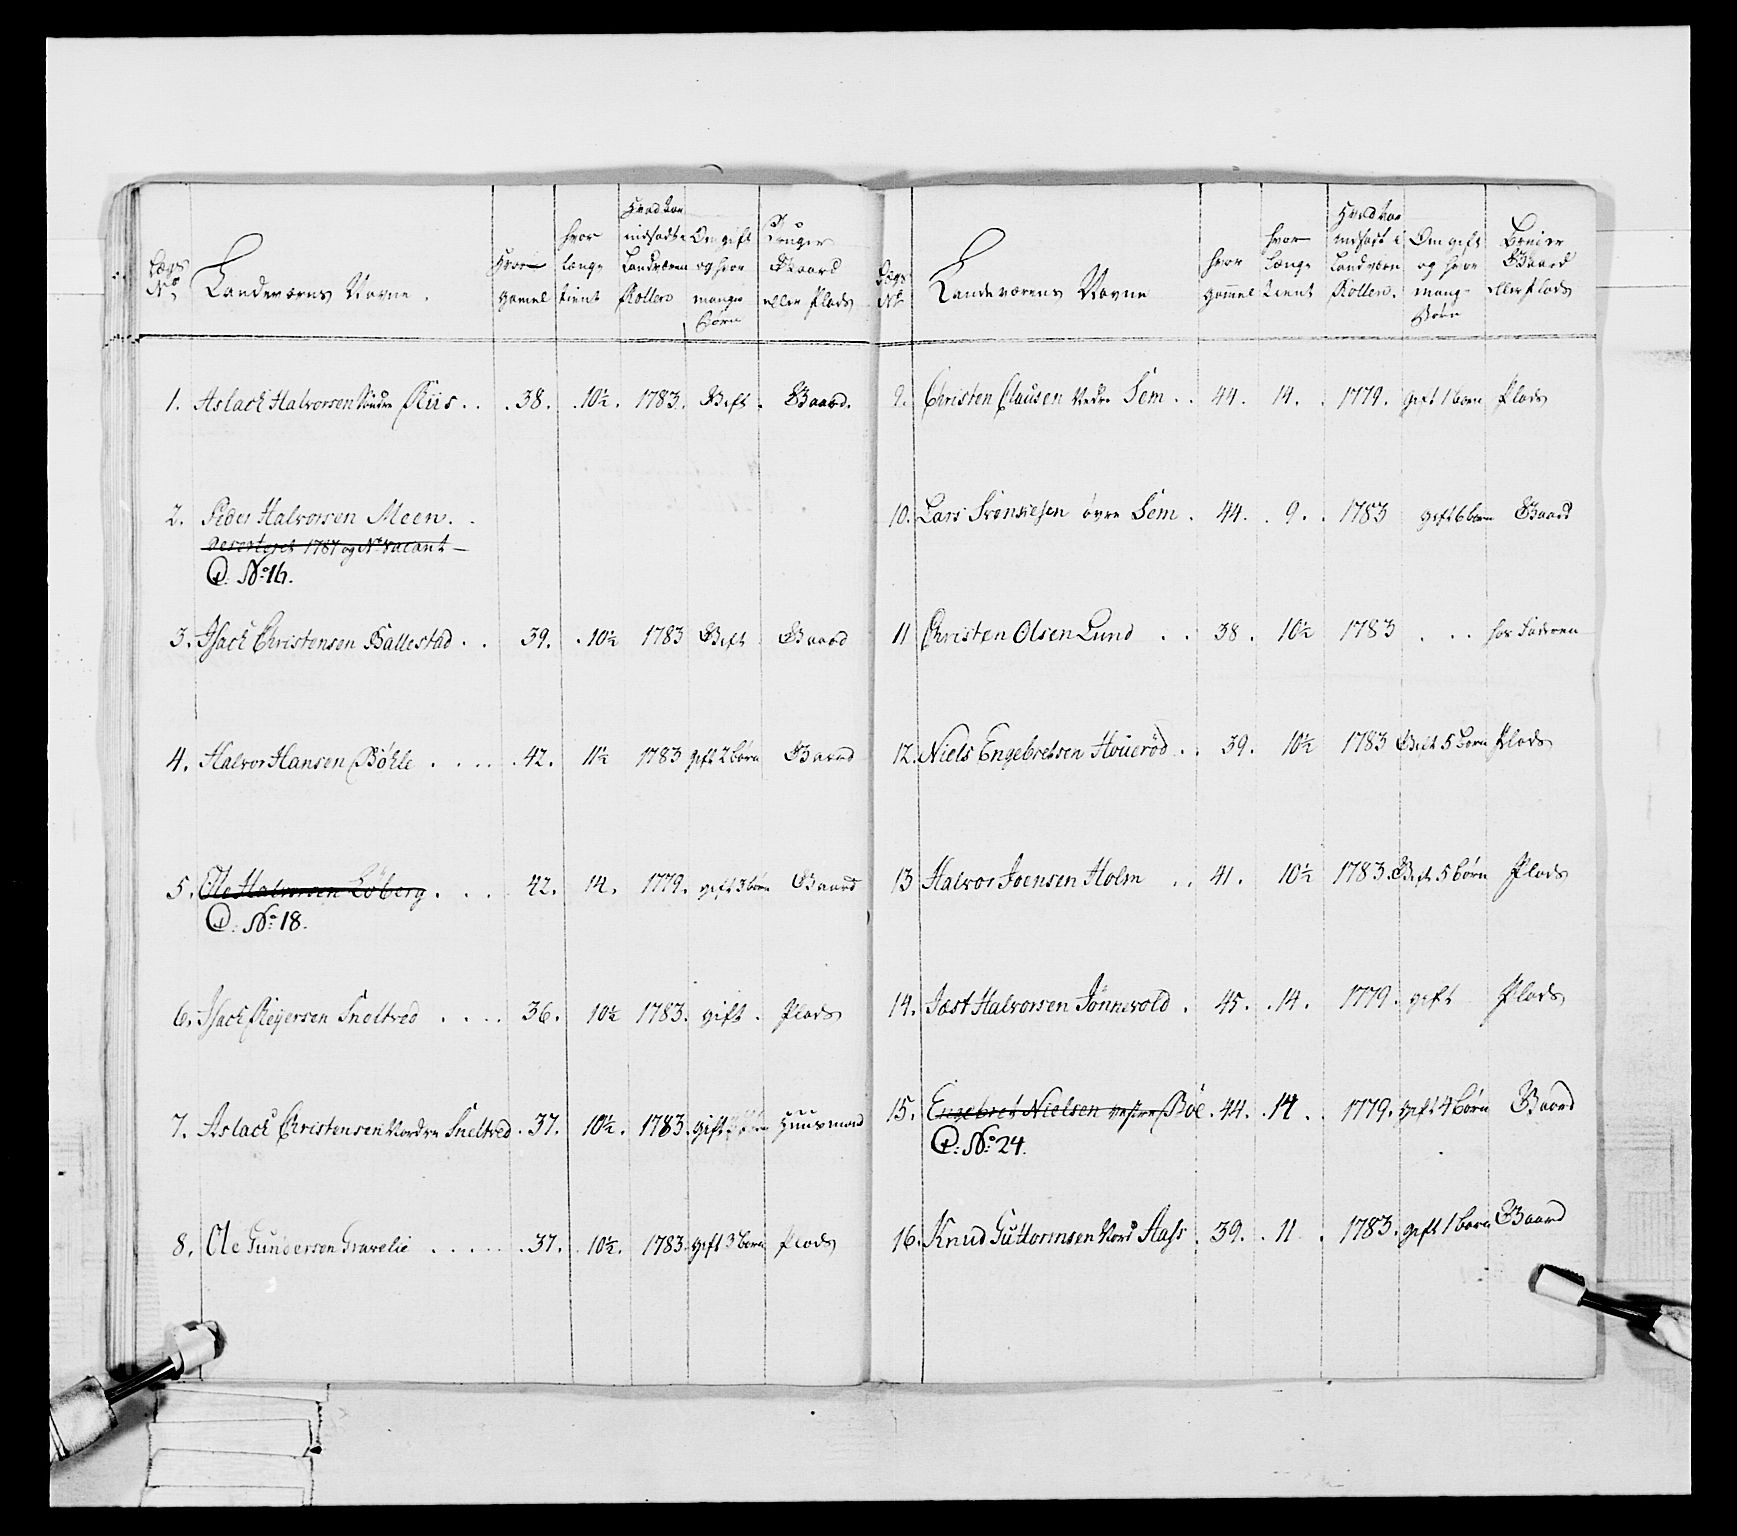 Lægs No
Landeværns Navne.
Hvor gamel
hvor længe tient
Hvad Aar indsadt i Landværn Rollen
Om gift og hvor mange Børn
Bruger Gaard eller Plads
1. Aslach Halvorsen Søndre Riis . . . 38. . 10½. 1783. Gift . Gaard.
2. Peder Halvorsen Meen . .
Deserteret 1787 og No vacant —
No 16.
3. Isach Christensen Ballestad . . 39. . 10½ 1783 Gift . Gaard
4. Halvor Hansen Bøhle . . . . . 42. 11½ 1783 gift 2 børn Gaard
5. Ole Halvorsen Løberg . . . . 42. 14. 1779. gift 3 børn Gaard
No 18.
6. Isach Reyersen Sneltved . . . . 36. 10½ 1783. gift . Plads
7. Aslach Christensen Nordre Sneltved . 37. 10½. 1783. gift Huusmand
8. Ole Gundersen Gravelie . . . . . . 37. . 10½. 1783. gift 3 børn Plads
Lægs No
Landeværens Navne
hvor gammel
hvor længe tient
Hvad Aar indsadt i Landværn Rollen.
Om gift og hvor mange Børn
Gaard eller Plads
9. Christen Clausen Nedre Sem . . 44. 14. . 1779. gift 1 børn Plads
10. Lars øvre Sem . 44. . 9. . 1783 gift 6 børn Gaard
11 Christen Olsen Lund . . 38. 10½ 1783 . . . hos Faderen
12. Niels Engebretsen Houerød . . 39. 10½ 1783 Gift 5 børn Plads
13 Halvor Joensen Holm . . 41. 10½ 1783. Gift 5 børn Plads
14. Jast Halvorsen Jønnevold . 45. . 14. 1779. gift Plads
15. Engebret Nielsen vestre Bøe . 44. . 14 . 1779. gift 4 børn Gaard
No 24.
16. Knud Guttormsen Nord Aass . 39. . 11 . 1783. gift 1 børn Gaard